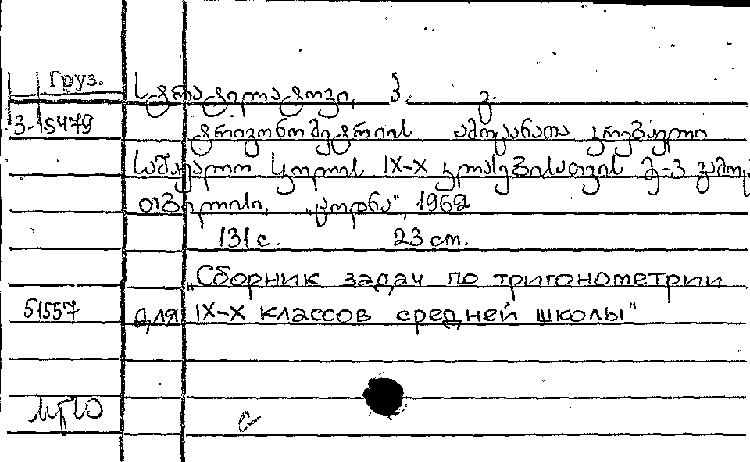 Груз.
სტრატილატოვი, პ. ვ.
3-15479
ტრიგონომეტრიის ამოცანათა კრებული
საშუალო სკოლის IX-X კლასებისათვის მე-3 გამოც.
თბილისი, „ცოდნა", 1962
131 с. 23 см.
„Сборник задач по тригонометрии
51557
для IX-X классов средней школы"